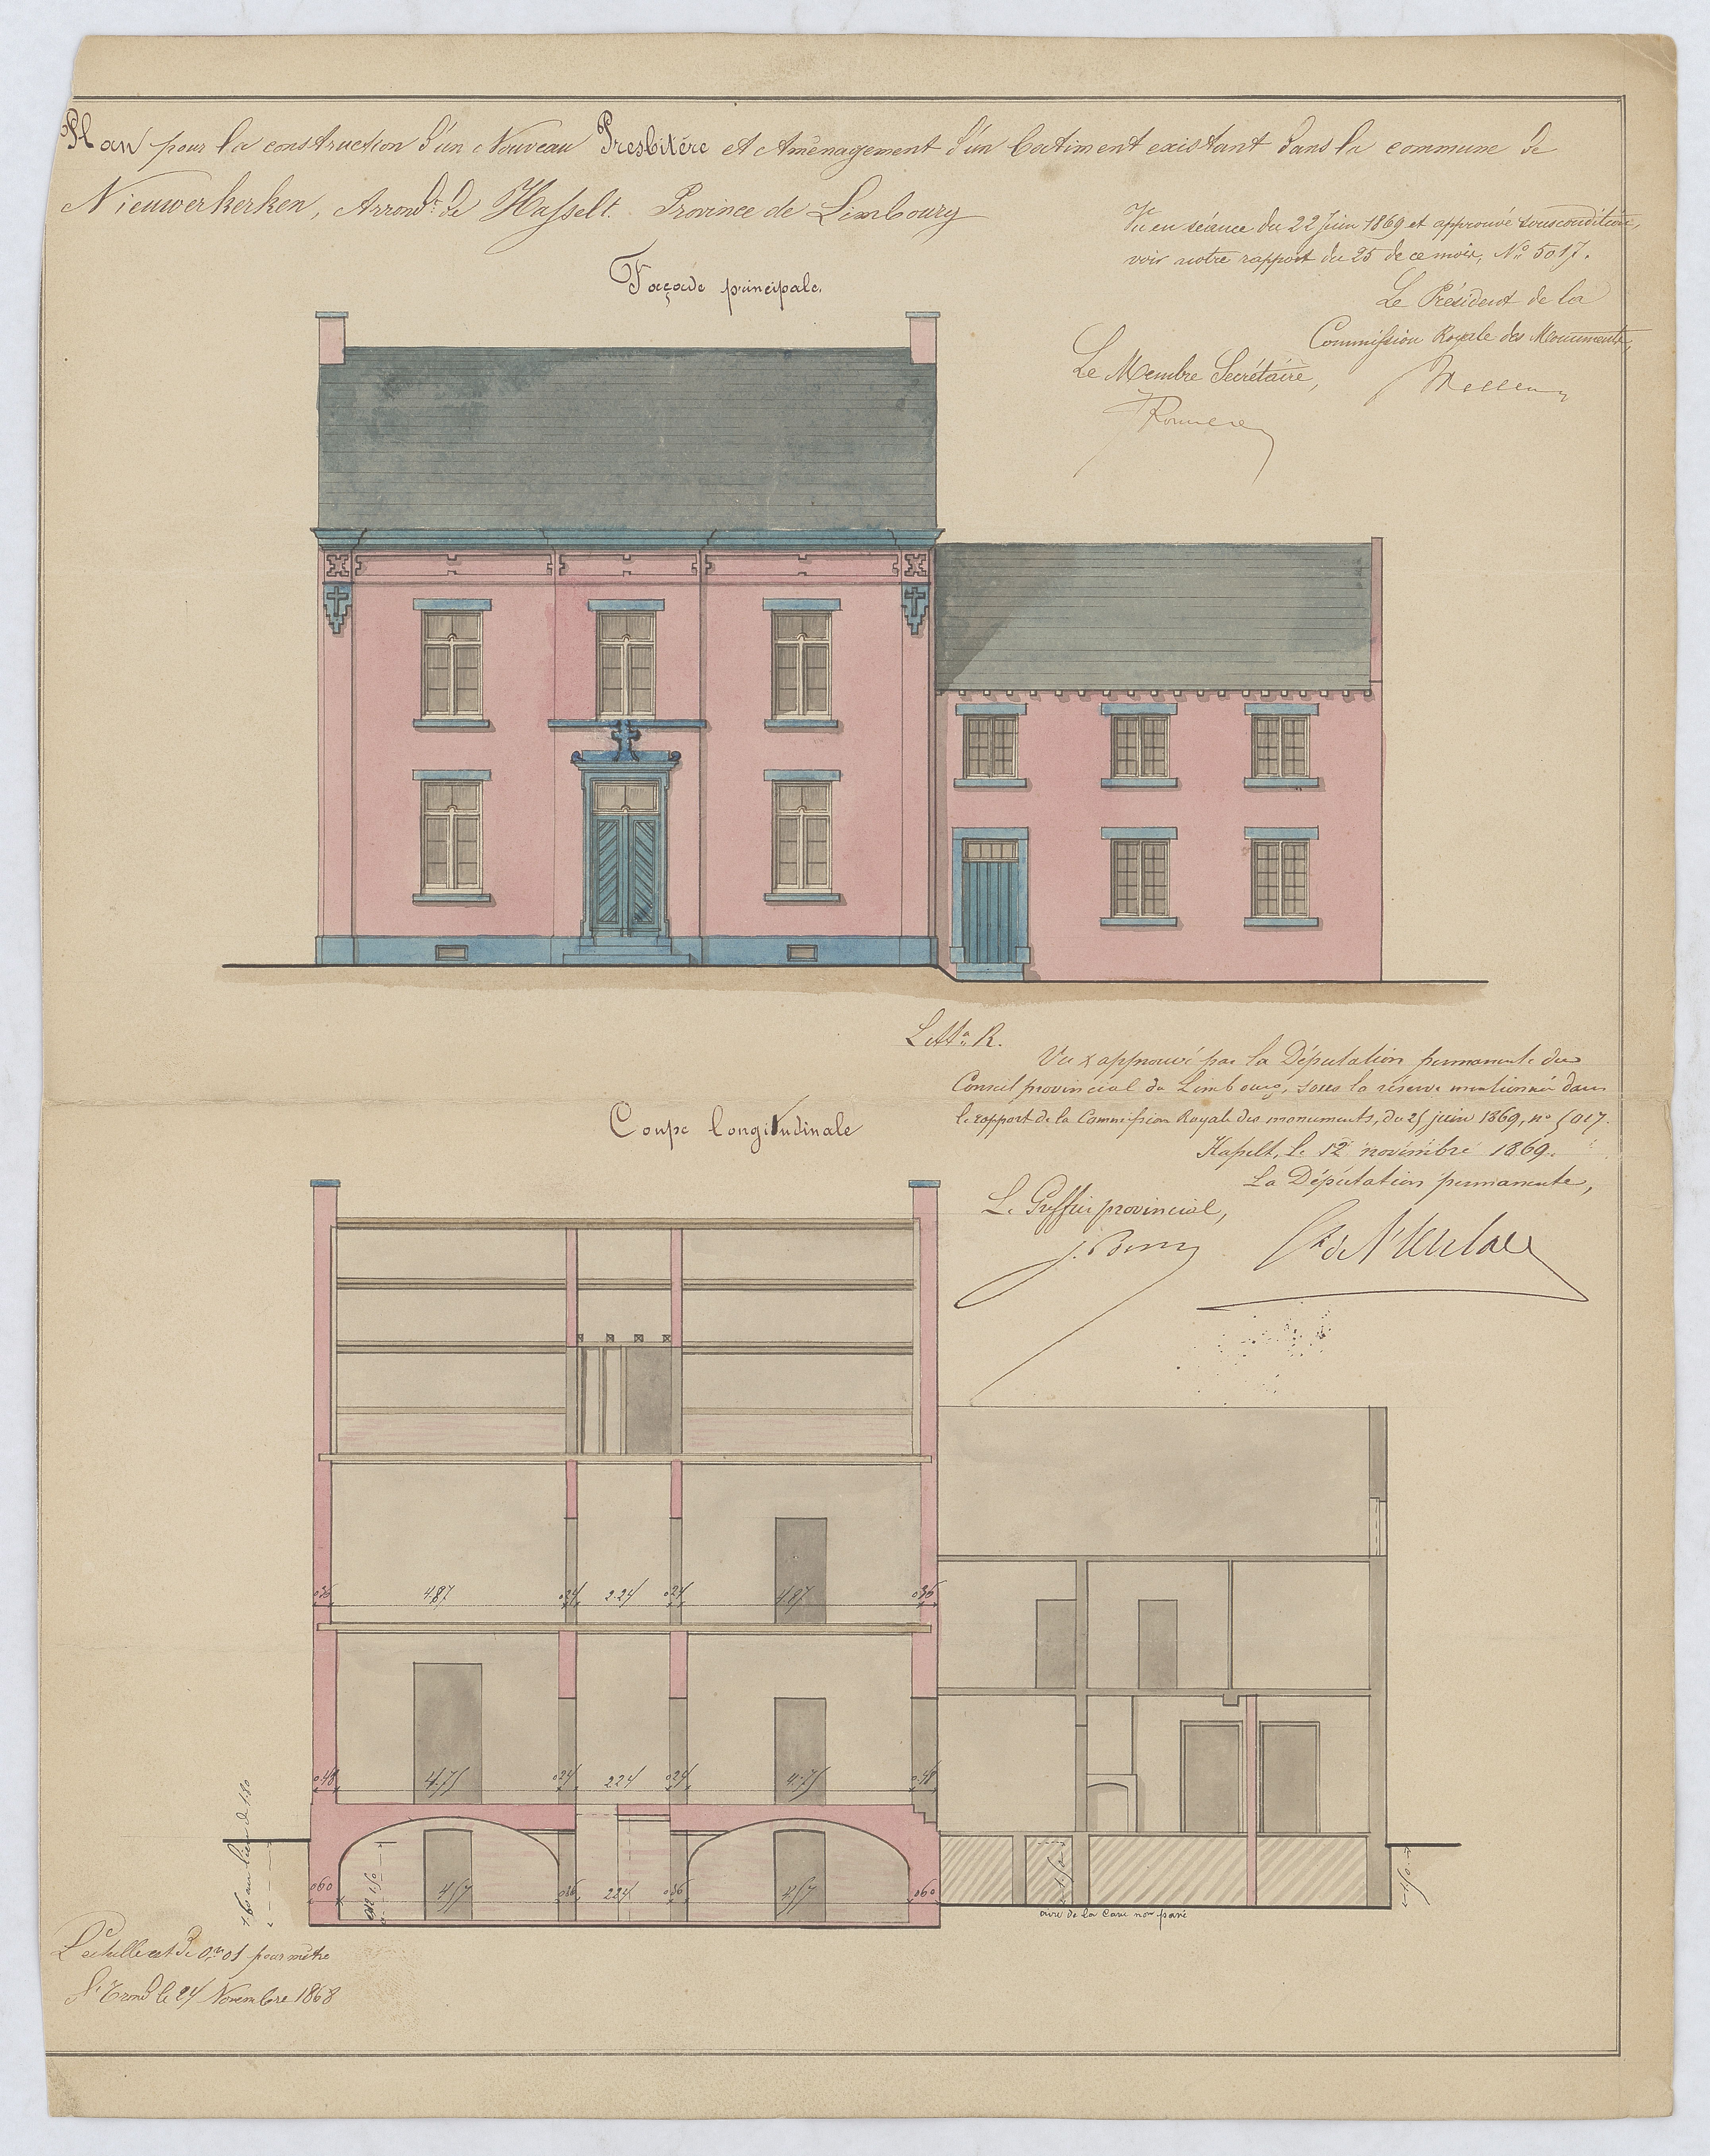 Plan pour la construction d'un Nouveau Presbitère et Aménagement d'un batiment existant dans la commune de
Nieuwerkerken, Arrondt de Hasselt. Province de Limbourg
Vu en séance du 22 Juin 1869 et approuvé sous condition,
voir notre rapport du 25 de ce mois, No 5017.
Le Président de la
Commission Royale des Monuments,
Le Membre Secrétaire,
Façade principale.
Litta R.
Vu & approuvé par la Députation permanente du
Conseil provincial du Limbourg, sous la réserve mentionnée dans
le rapport de la Commission Royale des monuments, du 25 juin 1869, no 5017.
Hasselt, le 12 novembre 1869.
La Députation permanente,
Le Greffier provincial,
Coupe longitudinale
036 487 024 2.24 024 487 036
048 4.75 024 224 024 4.75 048
060 457 036 224 036 457 060
1.60 au lieu de 1.80
aire de la Cave non pavé
L'echelle est de 0m01 pour mètre
St Trond le 24 Novembre 1868